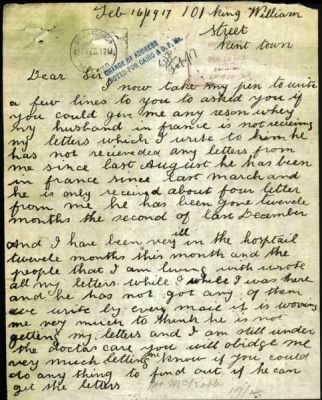 Feb 16/1917 101 King William
Street
Kent Town
CHANGE OF ADDRESS
NOTED FOR CAIRO & D.F. Ms.
Dear Sir
I now take my pen to write
a few lines to you to asked you if
you could give me any reson whey
my husband in france is not reciving
my letters which I write to him he
has not recieveded any letters from
me since last August he has been
in france since last march and
he is only received about four letter
from me he has been gone twevele
months the second of last Decamber
And I have been very ill in the horptail
twevele months this month and the
people that I am living with wrote
all my letters while I was there
and he has not got any of them
we write by every mail it is worring
me very much to think he is not
getting my letters and I am still under
the doctors care you will obidge me
very much letting me know if you could
do any thing to find out if he can
get the letters